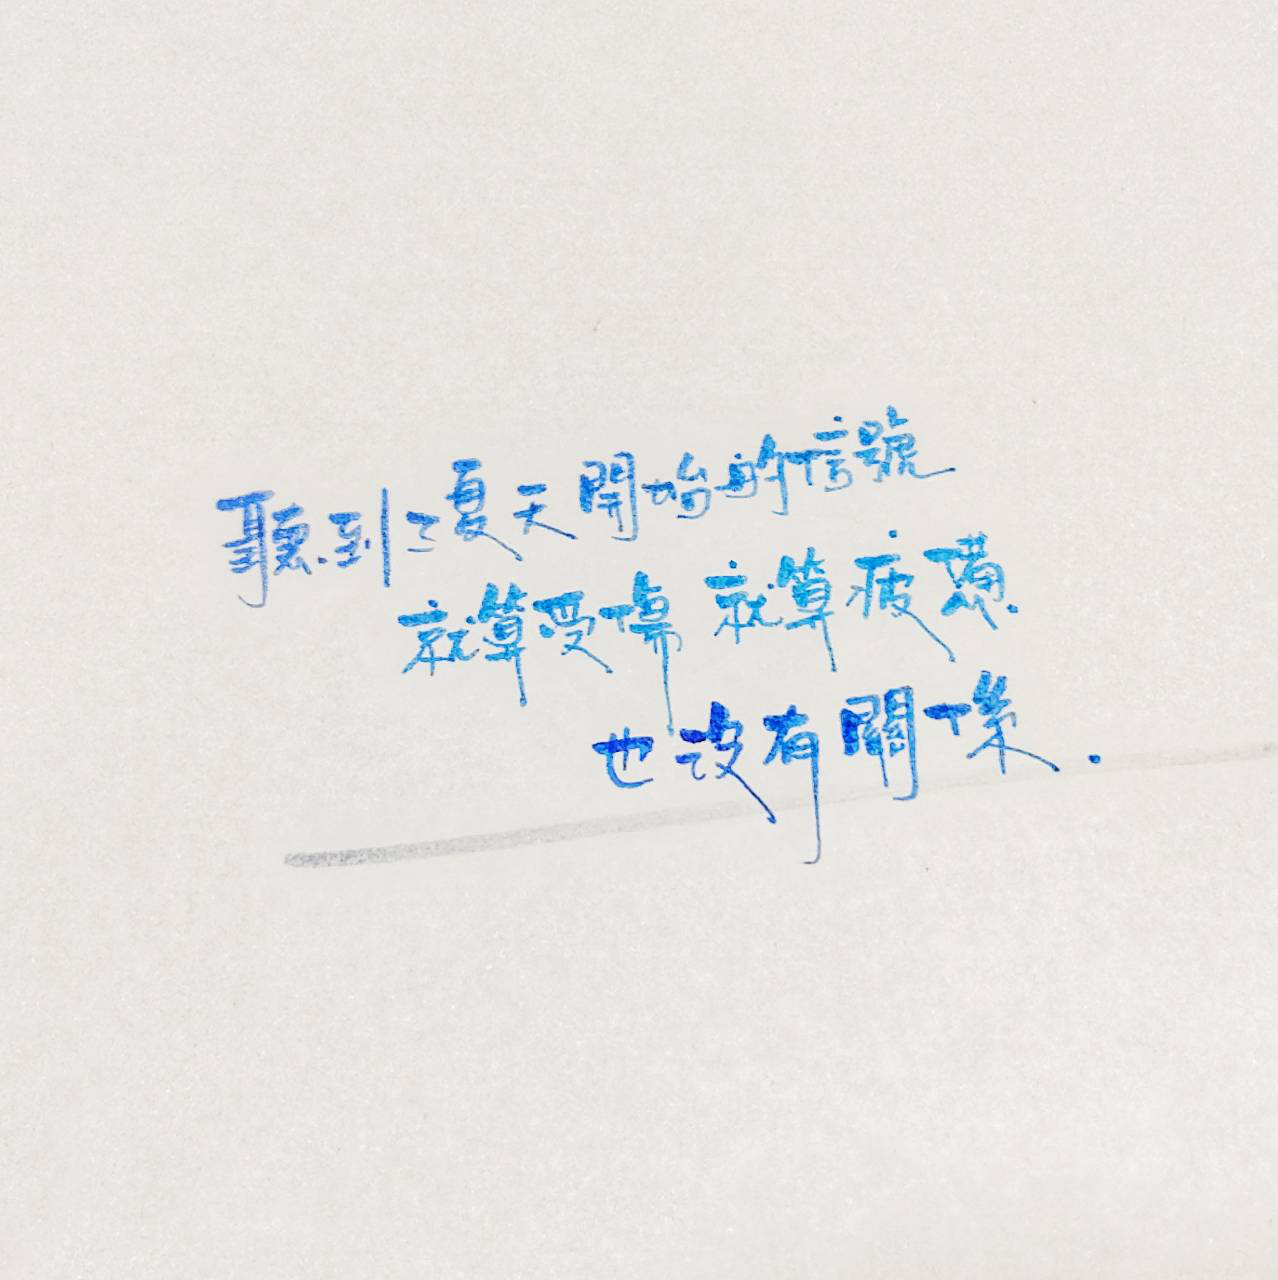 聽到了夏天開始的信號
就算受傷 就算疲憊
也沒有關係.